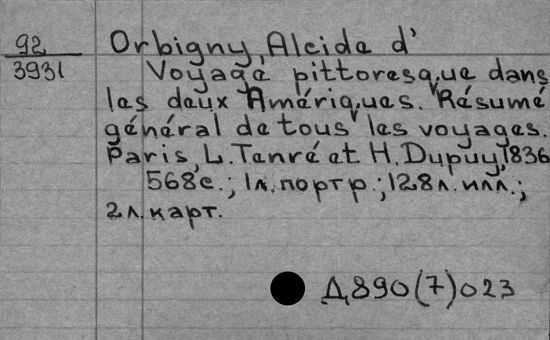 92
3931
Orbigny, Alcide d'
Voyage pittoresque dans
les deux Amériques. Résumé
général de tous les voyages.
Paris, L. Tenré et H. Dupuy, 1836
568 с.; 1 л. портр.; 128 л. илл.;
2 л. карт.
Д890(7)023